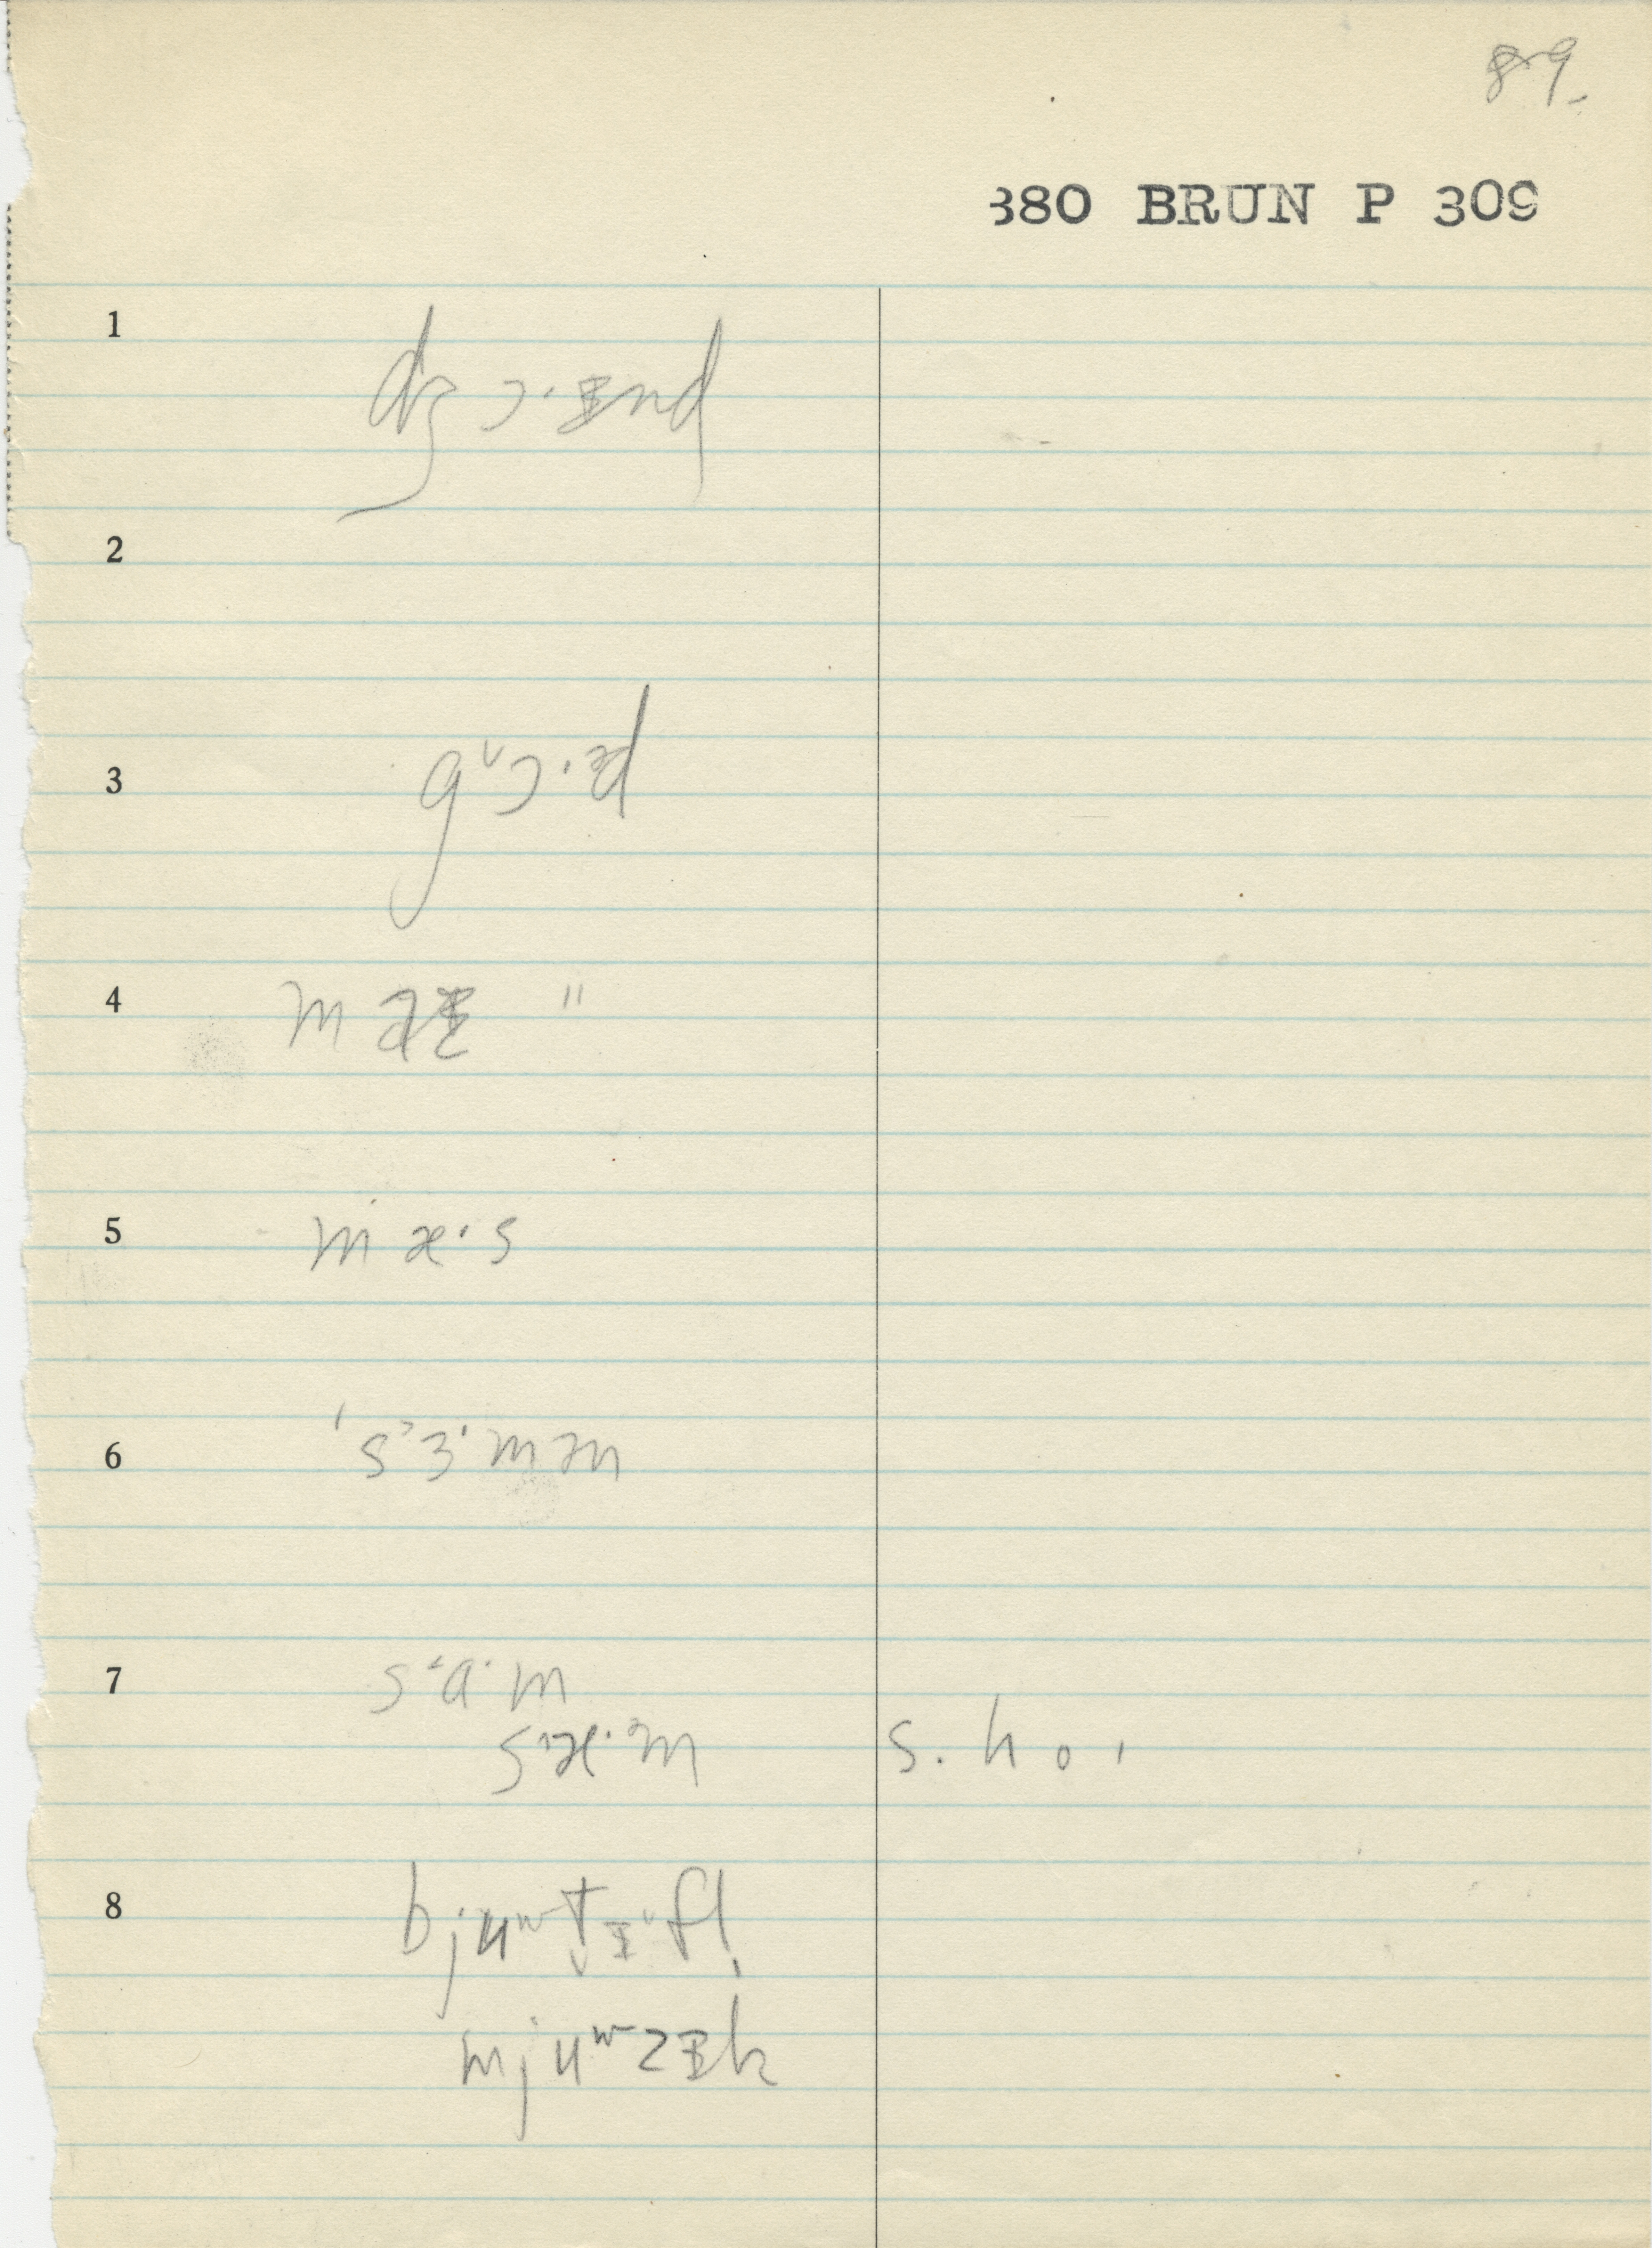 89.
380 BRUN P 309
1 dʒɔ·ᵻnd
2
3 gᵛɔ·ɪd
4 m aᵻ "
5 m æ·s
6 's³ɜ·mən
7 s‘ɑ·m
sᵊæ·m s. h o ı
8 bjuʷt̬ᵻᵛfl̩
mjuʷzᵻk